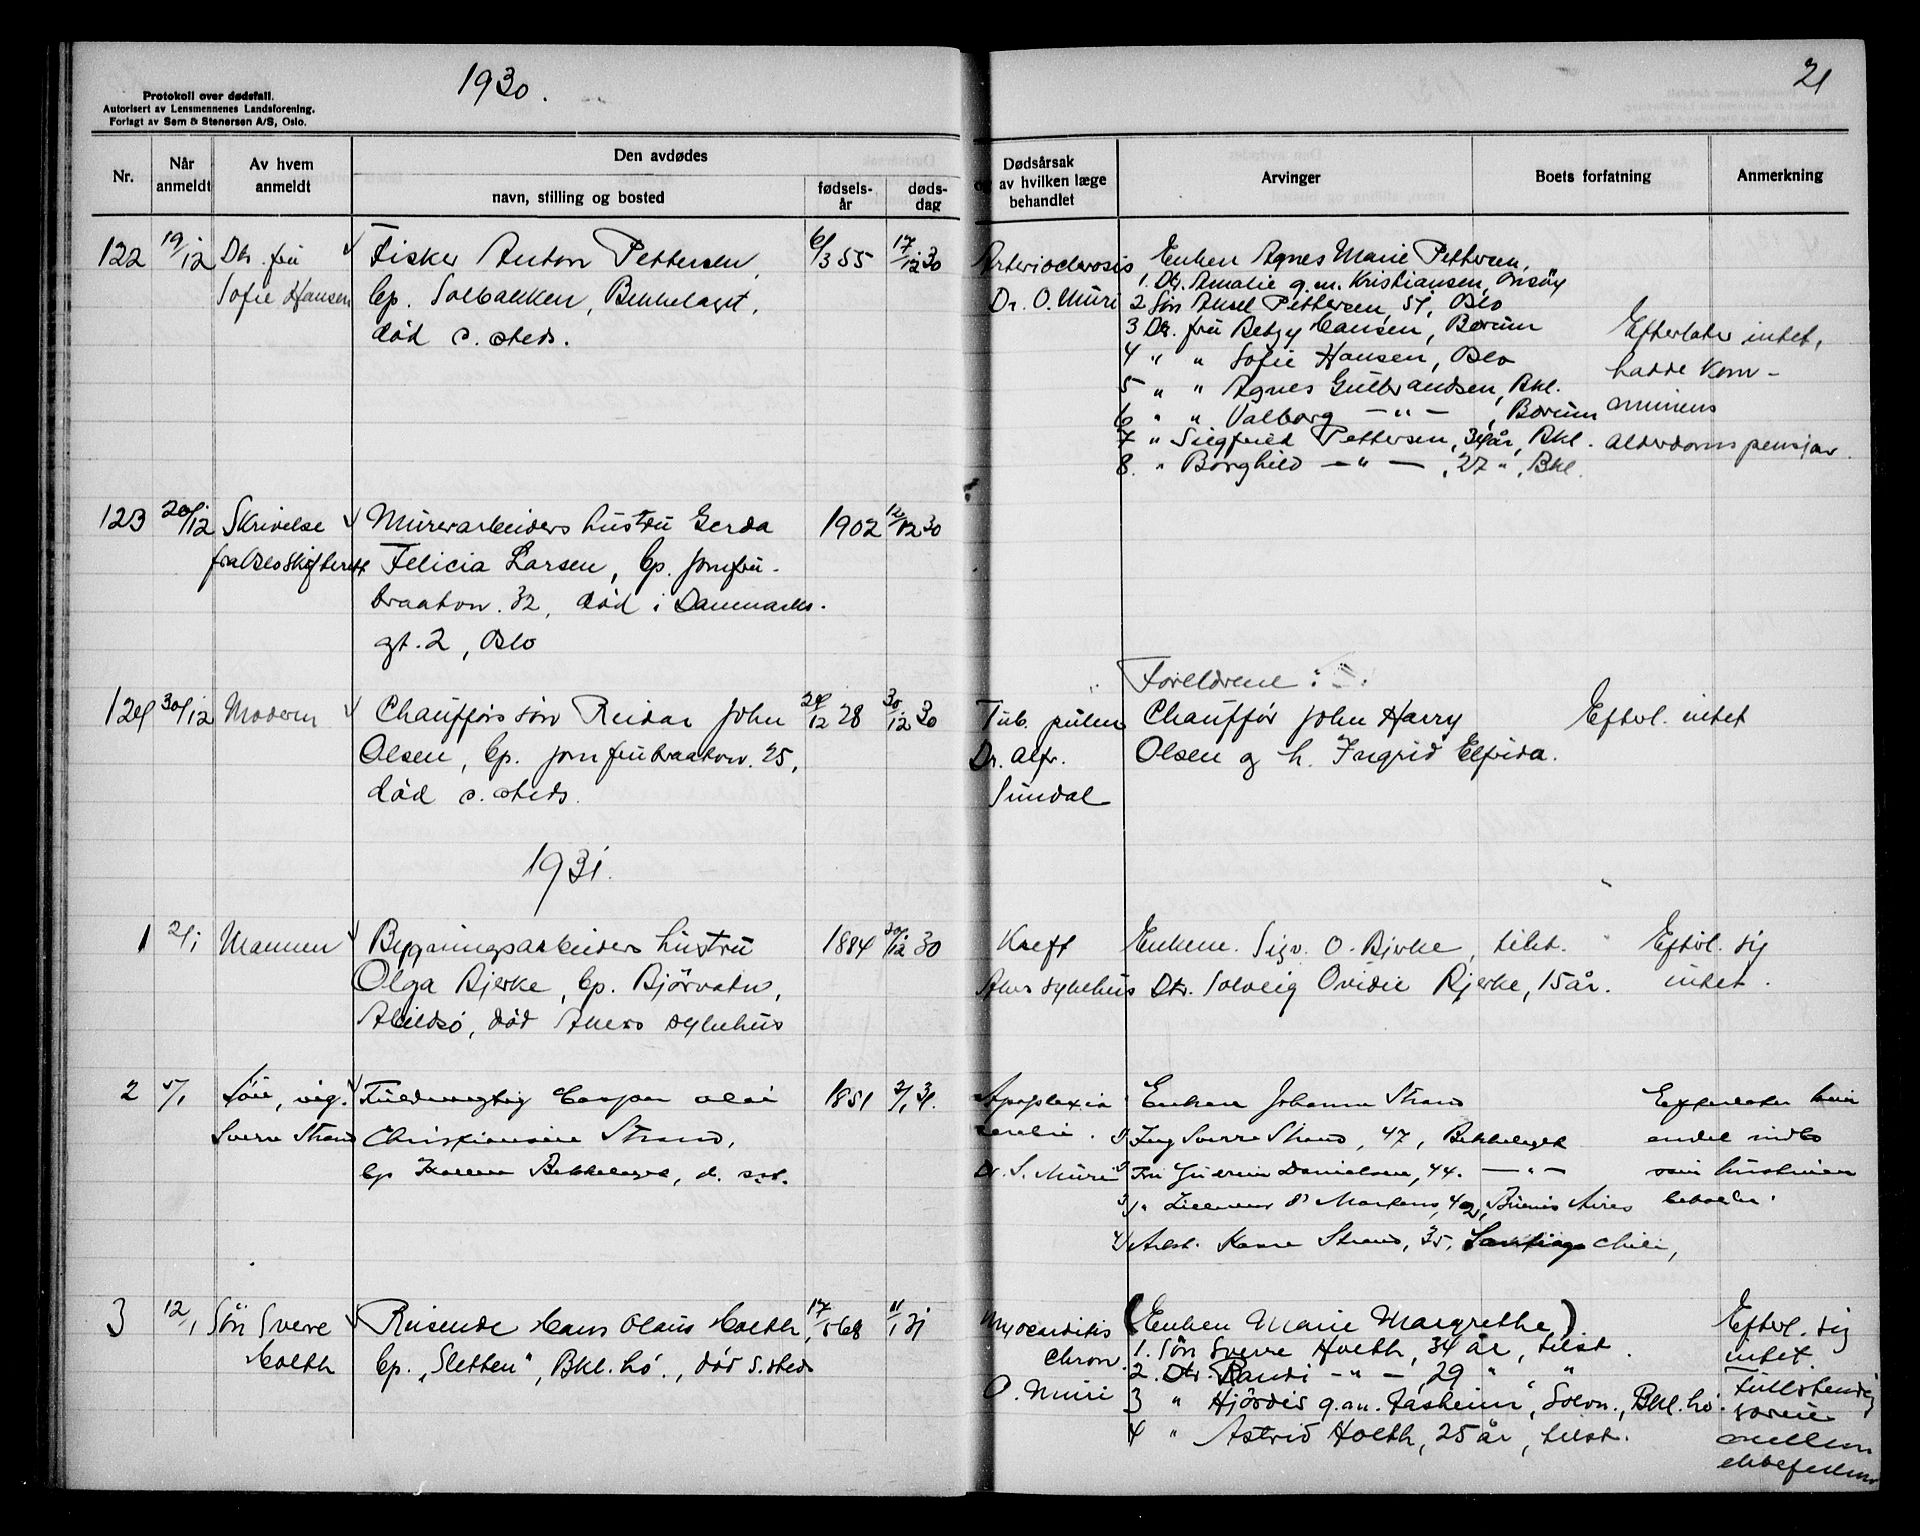 1930.
21
Protokoll over dødsfall.
Autorisert av Lensmennenes Landsforening.
Forlagt av Sem & Stenersen A/S, Oslo.
Nr.
Når anmeldt
Av hvem anmeldt
Den avdødes
navn, stilling og bosted
fødsels-år
døds-dag
Dødsårsak og av hvilken læge behandlet
Arvinger
Boets forfatning
Anmerkning
122 19/12 Dtr. fru Sofie Hansen
Fisker Anton Pettersen,
bp. Solbakken, Bekkelaget,
død s. steds.
6/3 55 17/12 30
Arterioclerosis
Dr. O. Muri
Enken Agnes Marie Pettersen,
1. Dtr. Amalie g.m. Kristiansen, Onsöy
2 Søn Aksel Pettersen, 51, Oslo
3 Dtr. fru Betzy Hansen, Berum
4 " " Sofie Hansen, Oslo
5 " " Agnes Gulbrandsen, Bkl.
6 " " Valborg —"— , Berum
7 " Siegfried Pettersen, 34 år, Bkl.
8. " Borghild —"— , 27 ", Bkl.
Efterlater intet,
hadde kom-
munens
alderdomspensjon.
123 20/12 Skrivelse
fra Oslo Skifterett
Murerarbeiders hustru Gerda
Felicia Larsen, bp. Jomfru-
braatvn. 32, død i Danmarks-
gt. 2, Oslo
1902 12/12 30
124 30/12 Modern
Chaufførs søn Reidar John
Olsen, bp. Jomfrubraatvn. 25,
død s. steds.
24/12 28 30/12 30
Tub. pulm
Dr. Alfr.
Sundal
Foreldrene:
Chauffør John Harry
Olsen og h. Ingrid Elfrida.
Efterl. intet
1931.
1 2/1 Mannen
Bygningsarbeiders hustru
Olga Bjerke, bp. Bjørvatn,
Abildsø, død Akers sykehus
1884 30/12 30
Kreft
Akers sykehus
Enkem. Sigv. O. Bjerke, tilst.
Dtr. Solveig Ovidie Bjerke, 15 år.
Efterl. sig
intet.
2 5/1
Sverre Strand
Fuldmægtig Casper Olai
Christiansen Strand,
bp Bekkelaget, d. sst.
1851 2/1 31.
Apoplexia
Dr. S. Muri
Enken Johanne Strand
1) Ing Sverre Strand, 47, Bekkelaget
2) Fru Gudrun Danielsen, 44. —"—
3) " Martens, 42, Buenos Aires
4) Kaare Strand, 35, Santiago Chile,
Efterlater kun
endel indbo
som hustruen
beholder.
3 12/1 Søn Sverre
Holth
Reisende Hans Olaus Holth,
bp. „Sletten", Bkl.hø., død s. steds
17/5 68 11/1 31
Myocarditis
chron.
O. Muri
(Enken Marie Margrethe)
1. Søn Sverre Holth, 34 år, tilst.
2. Dtr. Randi —"—, 29 " , "
3 " Hjørdis g.m. Aasheim, Solvn., Bkl.hø.
4 " Astrid Holth, 25 år, tilst.
Efterl. sig
intet.
Fullstendig
særeie
mellem
ektefellene